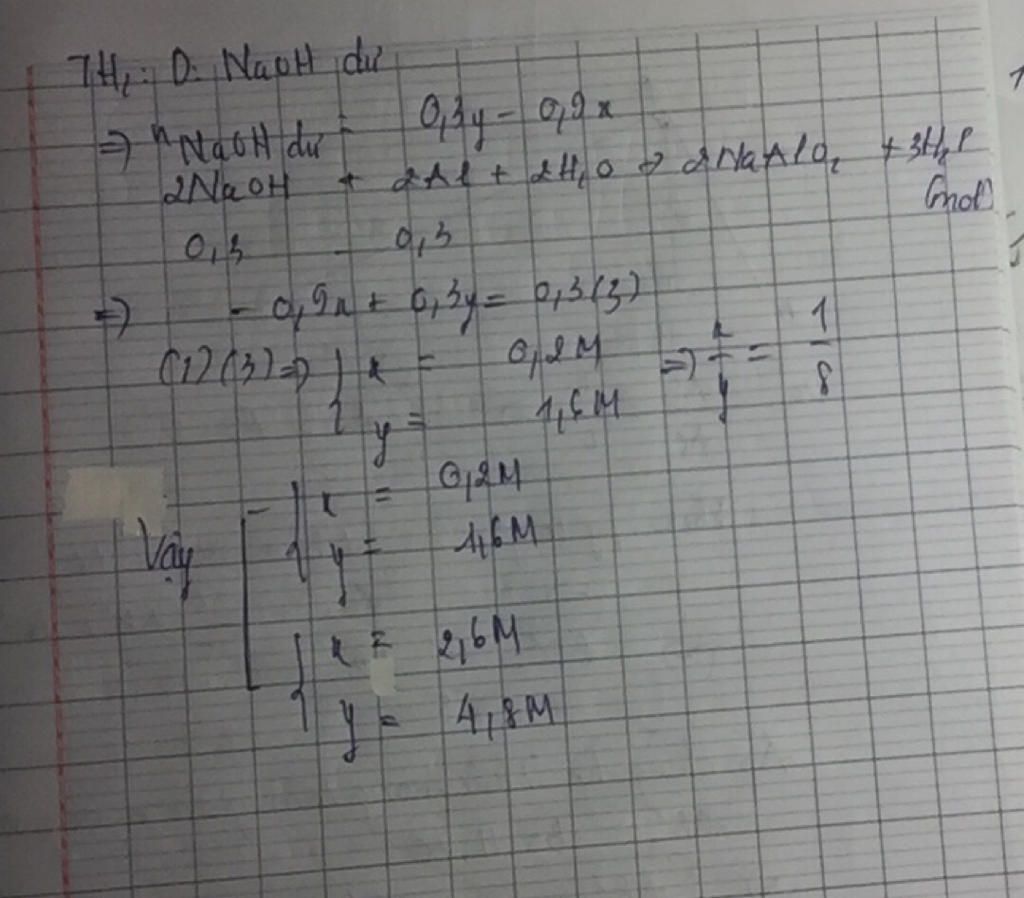 TH₂: D: NaOH dư
=> nNaOH dư = 0,3y - 0,9x
2NaOH + 2Al + 2H₂O -> 2NaAlO₂ + 3H₂↑
0,3 0,3 (mol)
=> - 0,9x + 0,3y = 0,3 (3)
(1) (3) => { x = 0,2M => x/y = 1/8
y = 1,6M
Vậy [ - { x = 0,2M
y = 1,6M
{ x = 2,6M
y = 4,8M